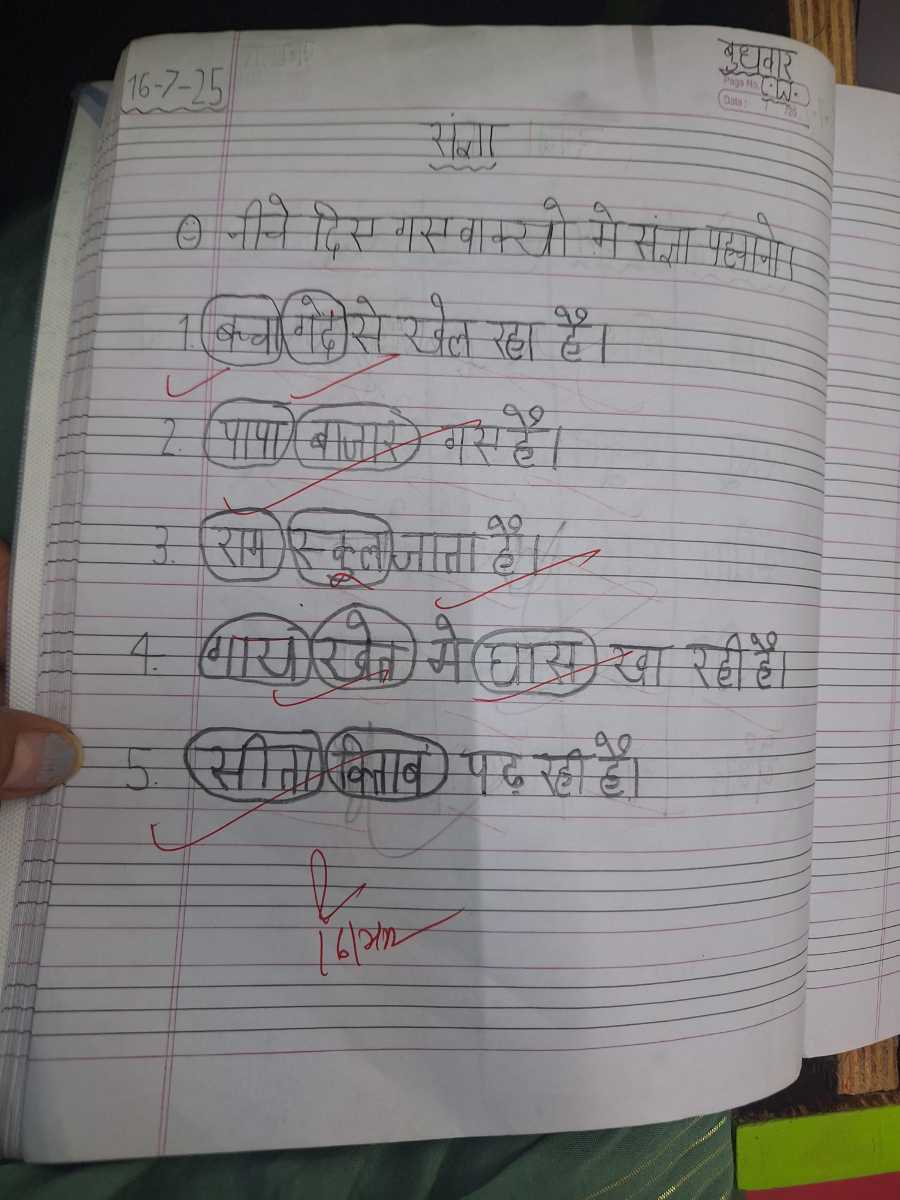 बुधवार
16-7-25
Page No. C.W.
Date:
संज्ञा
नीचे दिए गए वाक्यो मे संज्ञा पहचानो।
1. बच्चा गेंद से खेल रहा है।
2. पापा बाजार गए है।
3. राम स्कूल जाता है।
4. गाय खेत मे घास खा रही है।
5. सीता किताब पढ़ रही है।